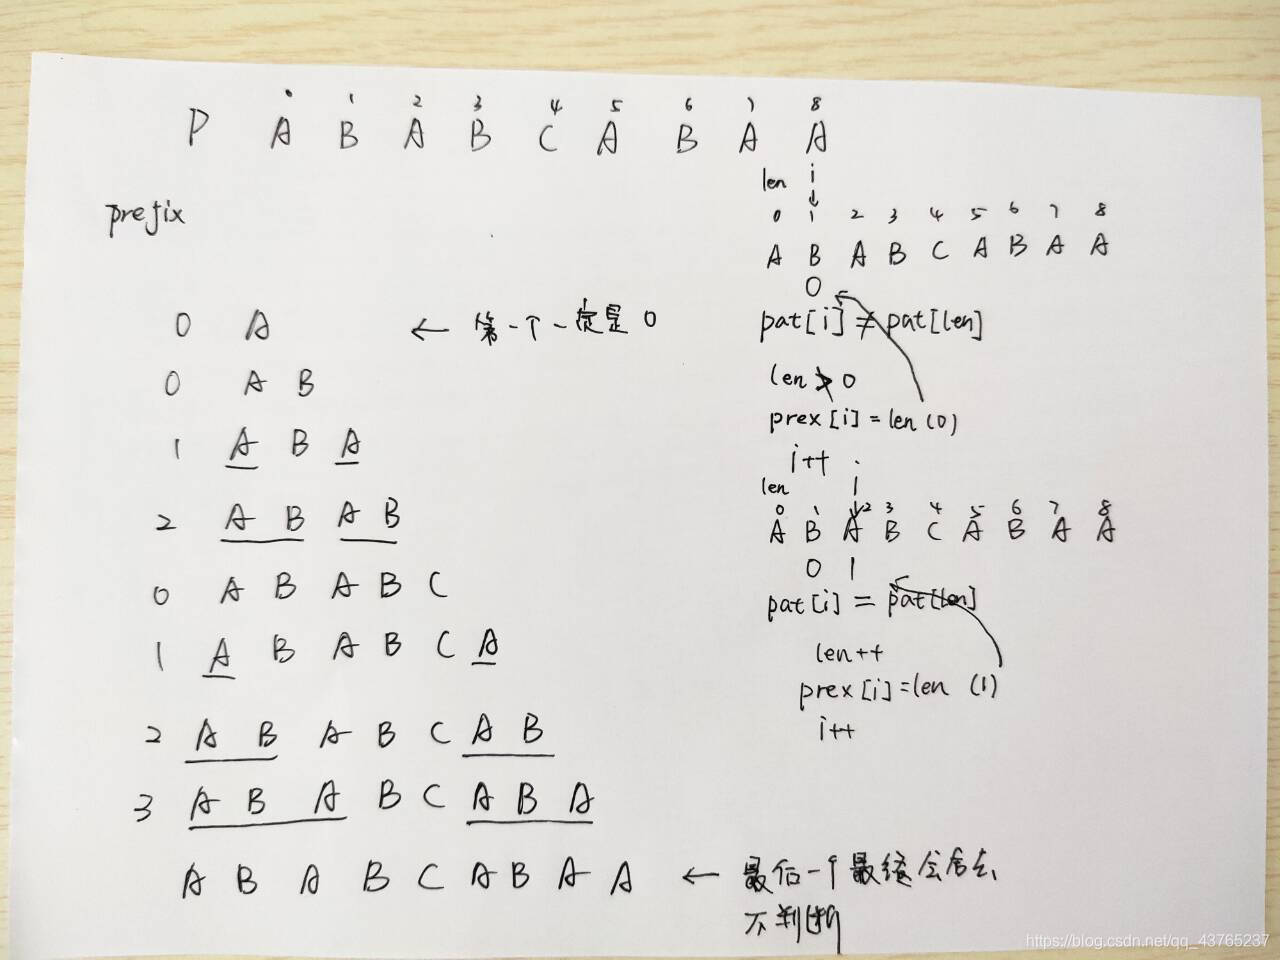 0 1 2 3 4 5 6 7 8
P A B A B C A B A A
prefix
0 A ← 第一个一定是0
0 A B
1 A B A
2 A B A B
0 A B A B C
1 A B A B C A
2 A B A B C A B
3 A B A B C A B A
A B A B C A B A A ← 最后一个最终会舍去、
不判断
len i
0 1 2 3 4 5 6 7 8
A B A B C A B A A
0
pat[i] ≠ pat[len]
len ≯ 0
prex[i]=len(0)
i++
len i
0 1 2 3 4 5 6 7 8
A B A B C A B A A
0 1
pat[i] = pat[len]
len++
prex[i]=len (1)
i++
https://blog.csdn.net/qq_43765237